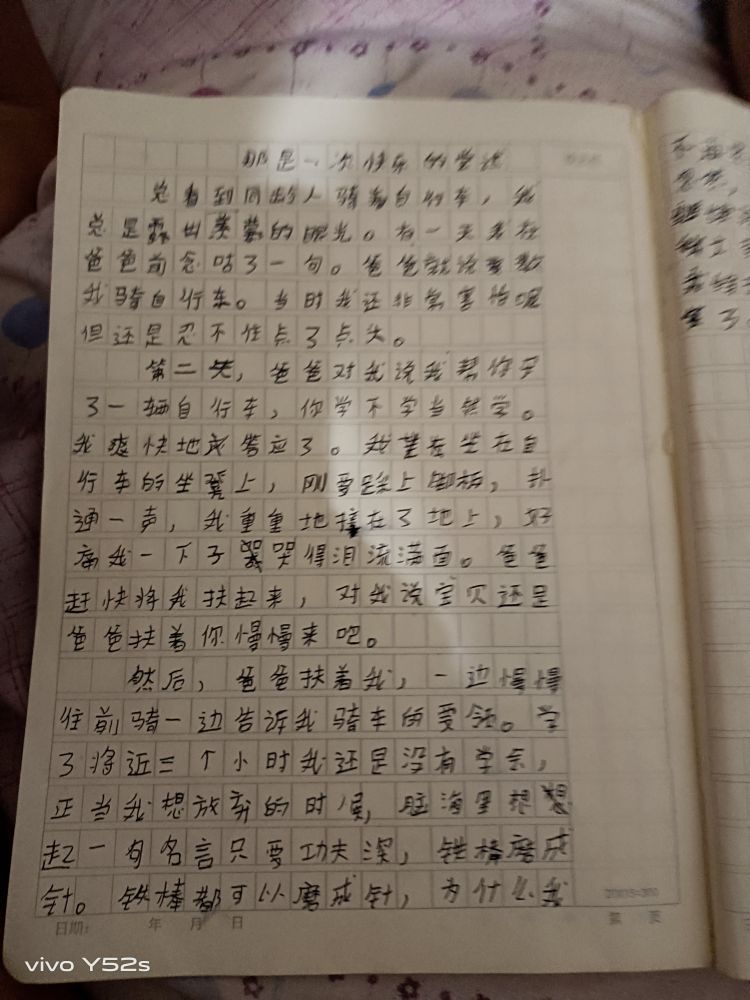 那是一次快乐的尝试
总看到同龄人骑着自行车，我
总是露出羡慕的眼光。有一天我在
爸爸前念咕了一句。爸爸就说要教
我骑自行车。当时我还非常害怕呢
但还是忍不住点了点头。
第二天，爸爸对我说我帮你买
了一辆自行车，你学不学当然学。
我爽快地答应了。我坐在自
行车的坐凳上，刚要踩上脚板，扑
通一声，我重重地摔在了地上，好
痛我一下子哭得泪流满面。爸爸
赶快将我扶起来，对我说宝贝还是
爸爸扶着你慢慢来吧。
然后，爸爸扶着我，一边慢慢
往前骑一边告诉我骑车的要领。学
了将近三个小时我还是没有学会，
正当我想放弃的时候，脑海里想
起一句名言只要功夫深，铁棒磨成
针。铁棒都可以磨成针，为什么我
日期： 年 月 日
第 页
vivo Y52s